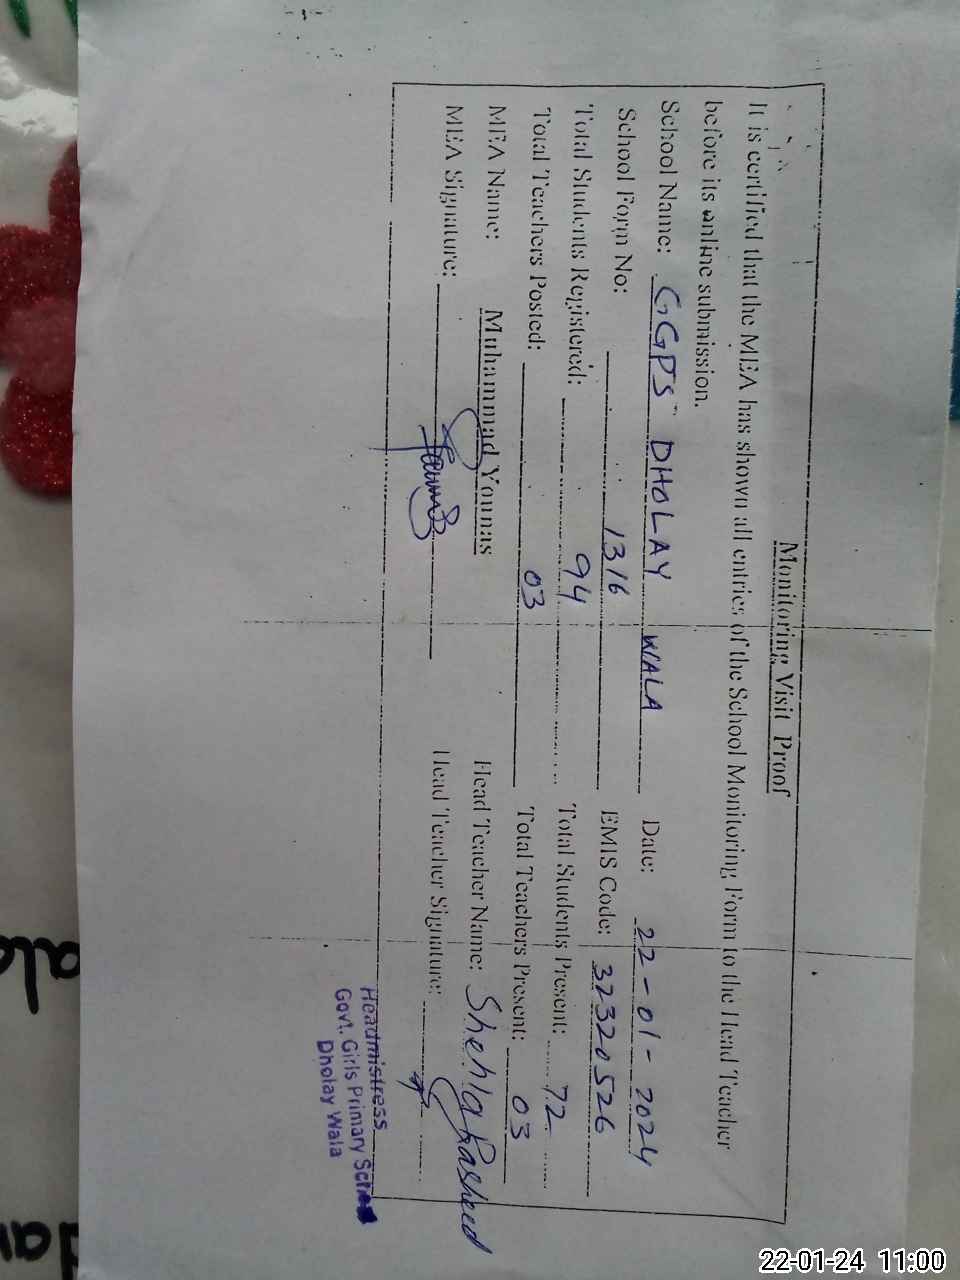 Monitoring Visit Proof
It is certified that the MEA has shown all entries of the School Monitoring Form to the Head Teacher
before its online submission.
School Name: GGPS DHOLAY WALA Date: 22-01-2024
School Form No: 1316 EMIS Code: 32320526
Total Students Registered: 94 Total Students Present: 72
Total Teachers Posted: 03 Total Teachers Present: 03
MEA Name: Muhammad Younas Head Teacher Name: Shehla Rasheed
MEA Signature: Head Teacher Signature:
Headmistress
Govt. Girls Primary School
Dholay Wala
22-01-24 11:00